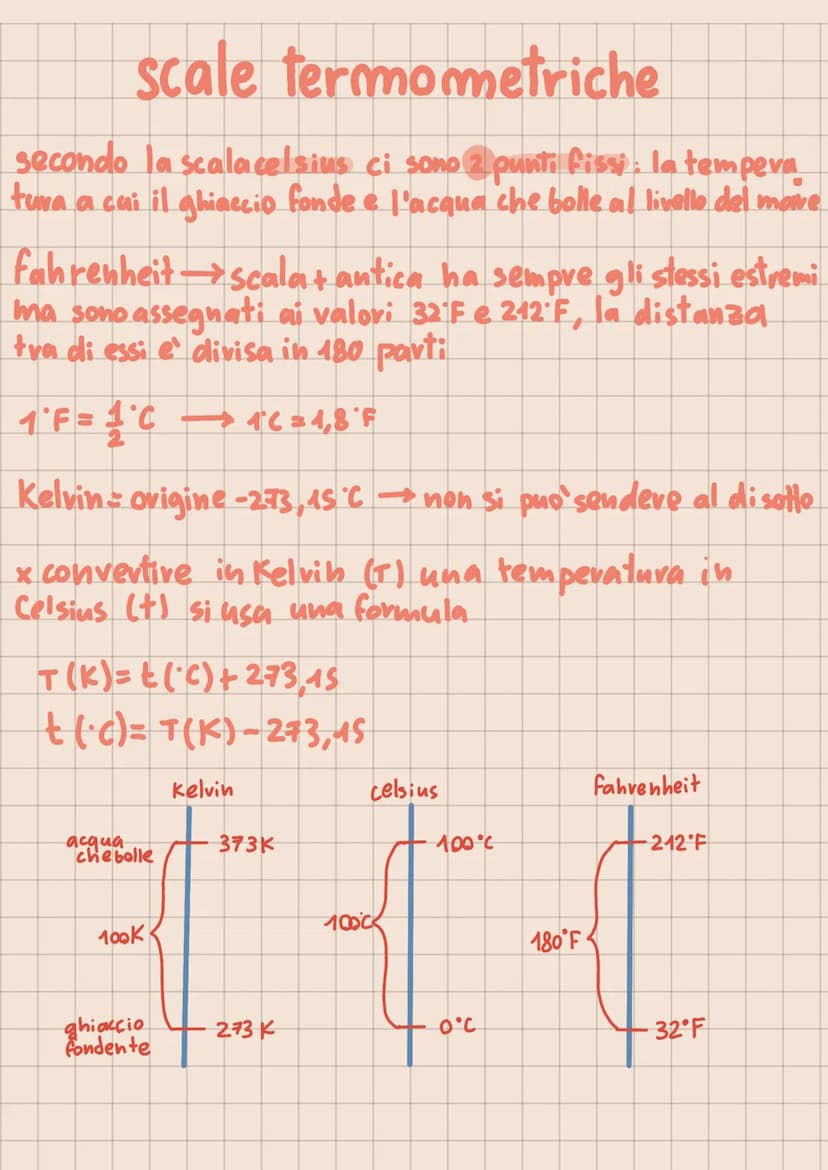 scale termometriche
secondo la scala celsius ci sono 2 punti fissi: la tempera
tura a cui il ghiaccio fonde e l'acqua che bolle al livello del mare
fahrenheit → scala + antica ha sempre gli stessi estremi
ma sono assegnati ai valori 32°F e 212°F, la distanza
tra di essi e' divisa in 180 parti
1°F = 1/2 °C → 1°C = 1,8°F
Kelvin = origine -273,15°C → non si puo' sendere al di sotto
x convertire in Kelvin (T) una temperatura in
Celsius (t) si usa una formula
T(K) = t(°C) + 273,15
t(°C) = T(K) - 273,15
Kelvin celsius fahrenheit
acqua
che bolle 373K 100°C 212°F
100K 100°C 180°F
ghiaccio
fondente 273K 0°C 32°F